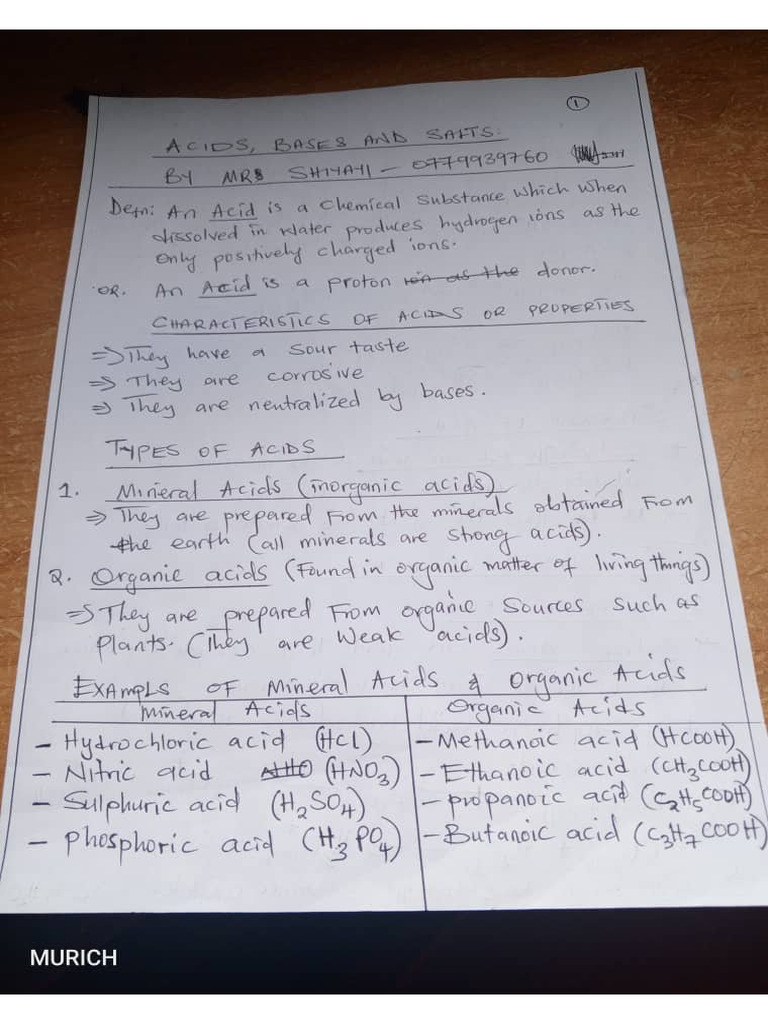 1
ACIDS, BASES AND SALTS.
BY MRS SHIYAYI - 0779939760
Defn: An Acid is a chemical substance which when
dissolved in water produces hydrogen ions as the
only positively charged ions.
OR. An Acid is a proton ion as the donor.
CHARACTERISTICS OF ACIDS OR PROPERTIES
⇒ They have a sour taste
⇒ They are corrosive
⇒ They are neutralized by bases.
TYPES OF ACIDS
1. Mineral Acids (inorganic acids)
⇒ They are prepared from the minerals obtained from
the earth (all minerals are strong acids).
2. Organic acids (Found in organic matter of living things)
⇒ They are prepared from organic sources such as
plants. (They are weak acids).
EXAMPLS OF Mineral Acids & Organic Acids
Mineral Acids Organic Acids
- Hydrochloric acid (HCl) - Methanoic acid (HCOOH)
- Nitric acid (HNO3) - Ethanoic acid (CH3COOH)
- Sulphuric acid (H2SO4) - propanoic acid (C2H5COOH)
- phosphoric acid (H3PO4) - Butanoic acid (C3H7COOH)
MURICH